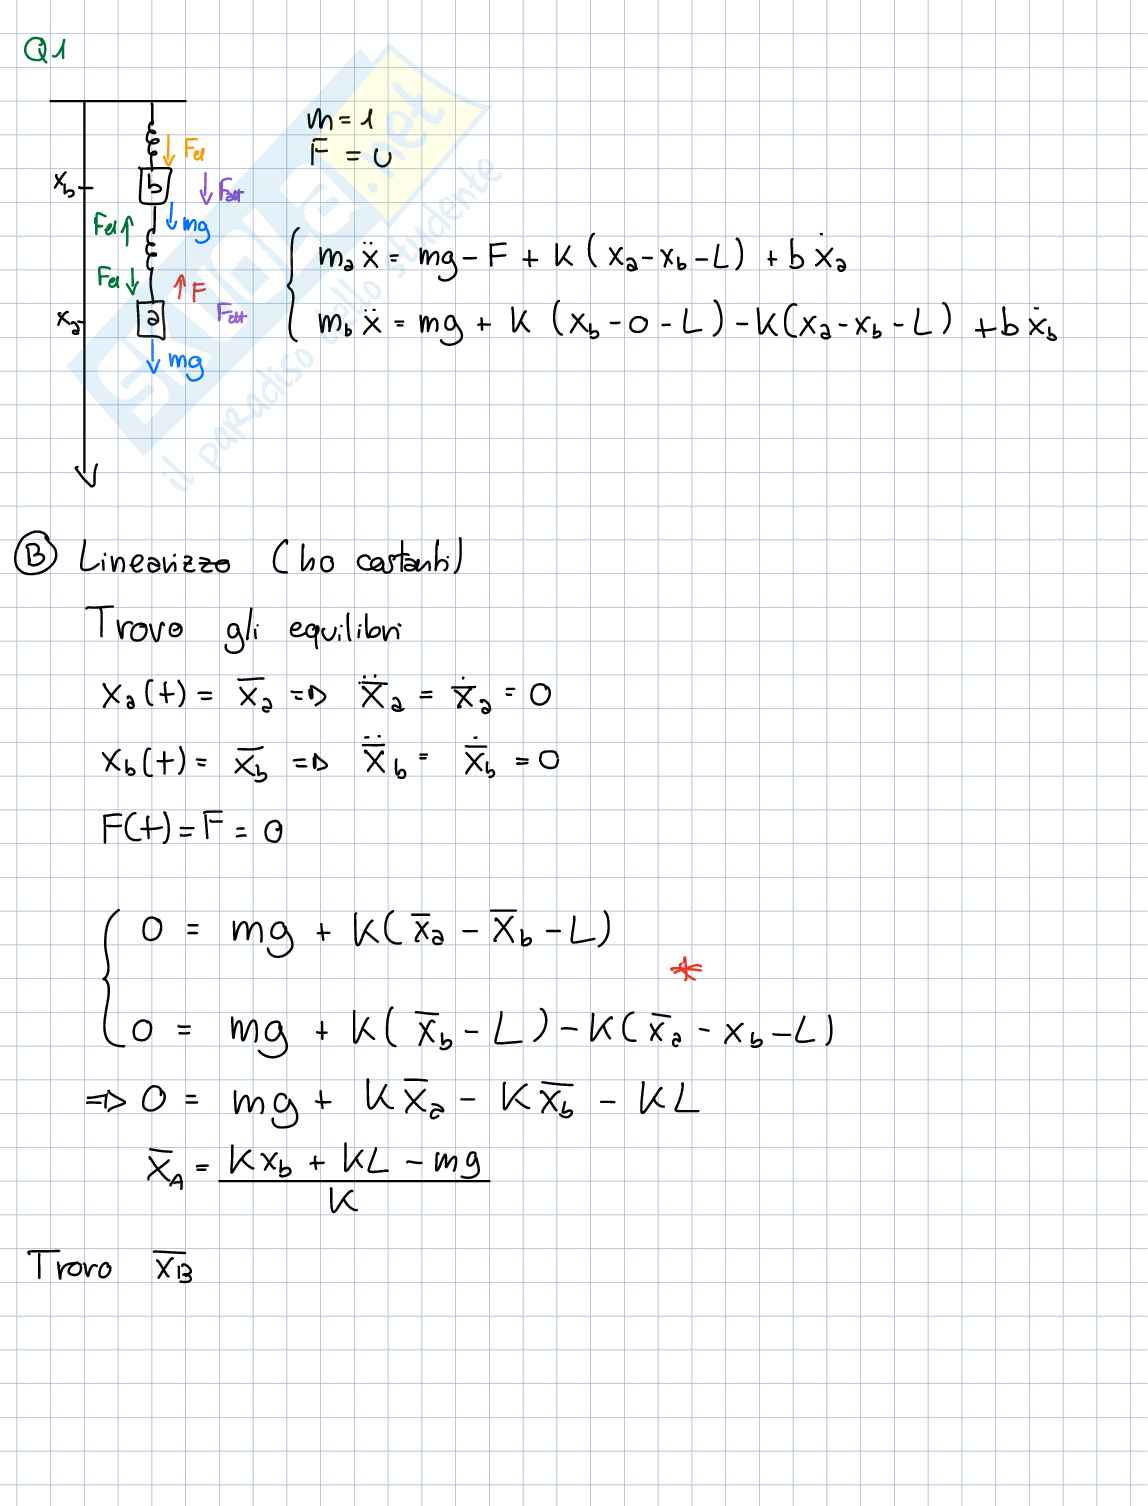 Q1
m = 1
F = 0
Fel
xb
b
Fatt
Fel
mg
Fel
F
xa
a
Fatt
mg
ma ẍ = mg - F + K (xa - xb - L) + b ẋa
mb ẍ = mg + K (xb - 0 - L) - K(xa - xb - L) + b ẋb
SKUOLA.net
il paradiso dello studente
B Linearizzo (ho costanti)
Trovo gli equilibri
xa(t) = x̄a => ẍ̄a = ẋ̄a = 0
xb(t) = x̄b => ẍ̄b = ẋ̄b = 0
F(t) = F̄ = 0
0 = mg + K(x̄a - x̄b - L)
*
0 = mg + K(x̄b - L) - K(x̄a - xb - L)
=> 0 = mg + Kx̄a - Kx̄b - KL
x̄A = Kxb + KL - mg
K
Trovo x̄B